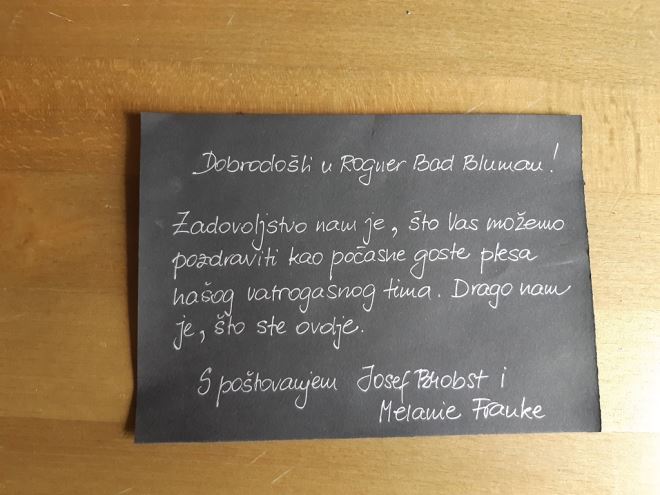 Dobrodošli u Rogner Bad Blumau!
Zadovoljstvo nam je, što Vas možemo
pozdraviti kao počasne goste plesa
našog vatrogasnog tima. Drago nam
je, što ste ovdje.
S poštovanjem Josef i
Melanie Franke